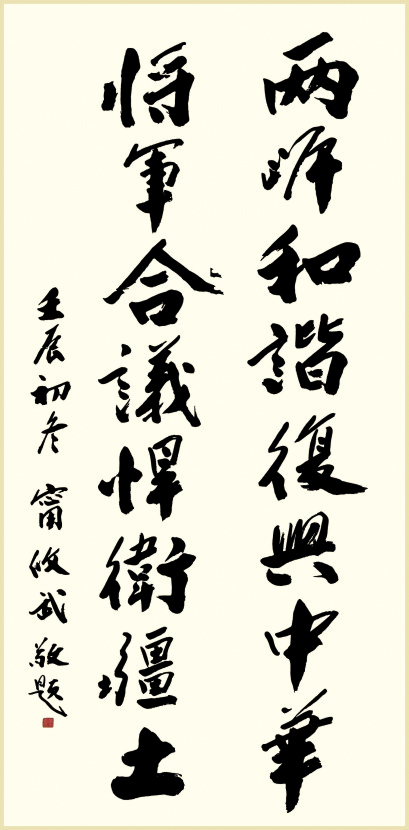 两岸和諧復興中華
将軍合議悍衛疆土
壬辰初冬 甯攸武敬題